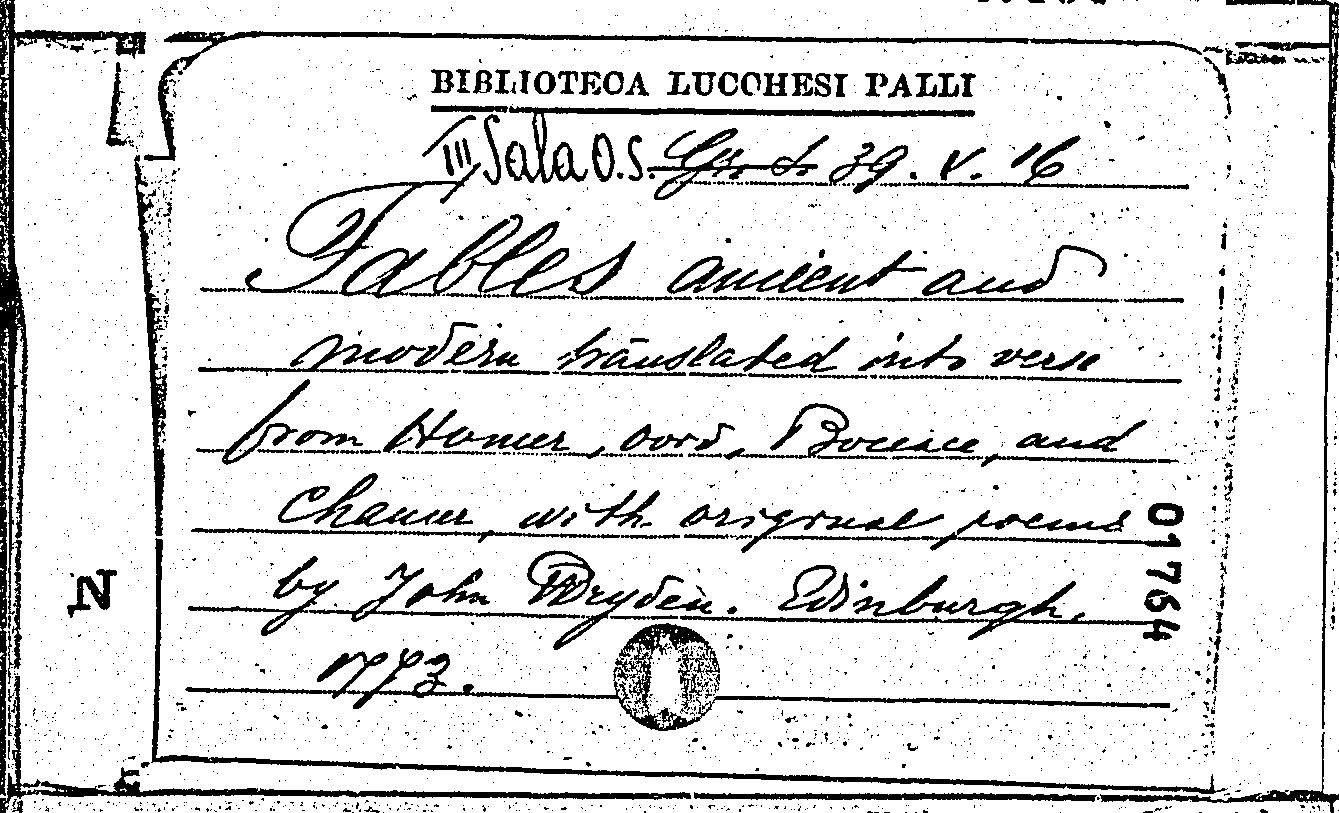 BIBLIOTECA LUCCHESI PALLI
III Sala O.S. Gr. S. 39. V. 16
Fables ancient and
modern translated into verse
from Homer, Ovid, Boccace, and
Chaucer, with original poems
by John Dryden. Edinburgh.
1773.
01764
N